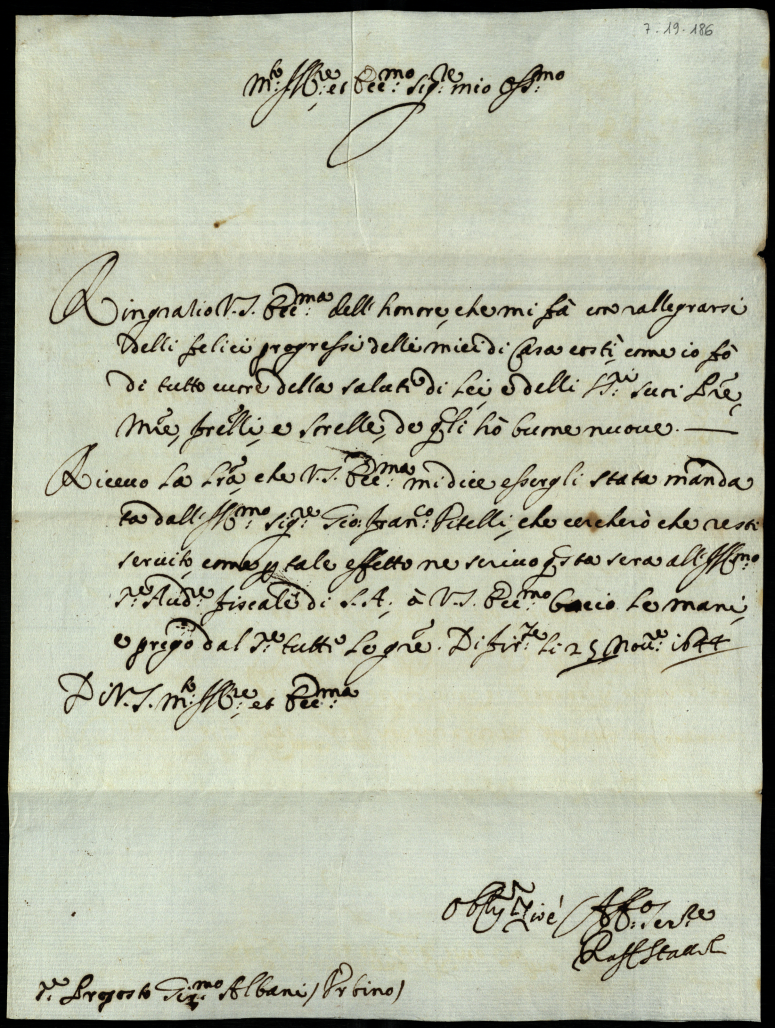 7-19-186
M.to Ill.re et Ecc.mo Sig.re mio Oss.mo
Ringratio V.S. Ecc.ma dell'honore, che mi fà con rallegrarsi
delli felici progressi delli miei di Casa costì, come io fò
di tutto cuore della salute di Lei, e delli SS.ri suoi Pre,
Mre, frelli, e sorelle, de qli hò buone nuove.
Ricevo la lra che V.S. Ecc.ma mi dice essergli stata manda
ta dall'Ill.mo Sig.re Gio: Fran.co Vitelli, che cercherò che resti
servito, come p tale effetto ne scrivo qsta sera all'Ill.mo
S.re Aud.re fiscale di S.A., à V.S. Ecc.mo bacio le mani,
e prego dal S.re tutte le grè. Di Fir.ze li 25 Nov.re 1644
Di V.S. M.to Ill.re et Ecc.ma
Aff.mo Ser.re
S.re Proposto Gir.mo Albani (Urbino)